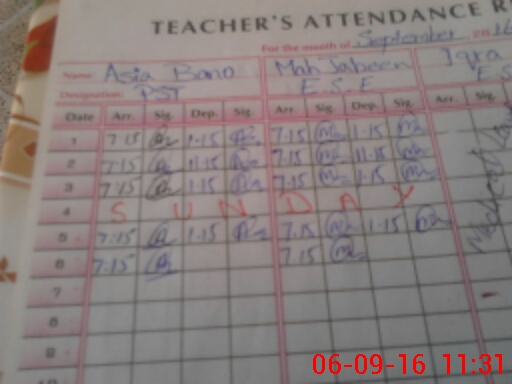 TEACHER'S ATTENDANCE R
For the month of September 2016
Name: Asia Bano Mah Jabeen Iqra
Designation: PST E.S.E E.S
Date Arr. Sig. Dep. Sig. Arr. Sig. Dep. Sig. Arr. Sig.
1 7-15 1-15 7-15 1-15
2 7-15 11-15 7-15 11-15
3 7-15 1-15 7-15 1-15
4 S U N D A Y
5 7-15 1-15 7-15 1-15
6 7-15 7-15
7
8
9
10
06-09-16 11:31